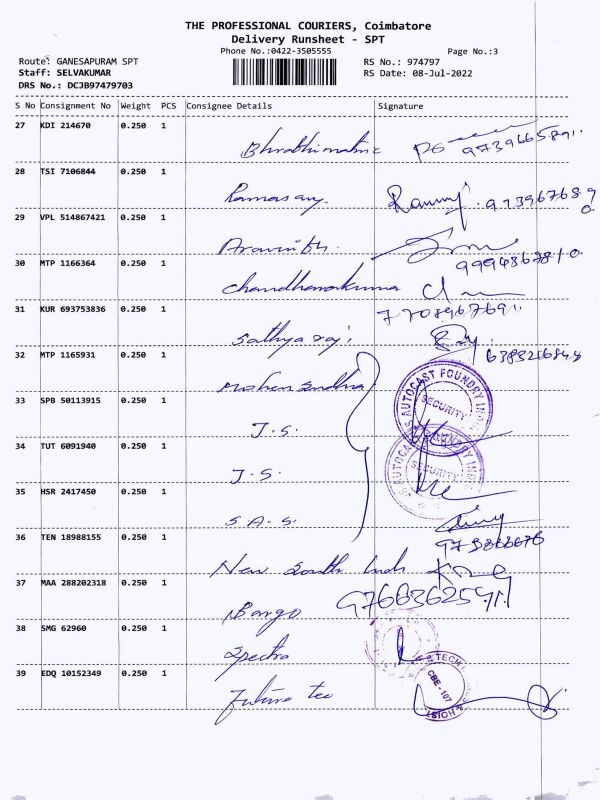 THE PROFESSIONAL COURIERS, Coimbatore
Delivery Runsheet - SPT
Phone No.:0422-3505555
Page No.:3
Route: GANESAPURAM SPT
RS No.: 974797
Staff: SELVAKUMAR
RS Date: 08-Jul-2022
DRS No.: DCJB97479703
S No Consignment No Weight PCS Consignee Details Signature
27 KDI 214670 0.250 1
28 TSI 7106844 0.250 1
Ramasamy.
29 VPL 514867421 0.250 1
Aravinth.
30 MTP 1166364 0.250 1
Chandhanakumar
31 KUR 693753836 0.250 1
7708967691.
Sathya raj
32 MTP 1165931 0.250 1
33 SPB 50113915 0.250 1
AUTOCAST FOUNDRY
SECURITY
J.S.
34 TUT 6091940 0.250 1
SECURITY
J.S.
35 HSR 2417450 0.250 1
S.A.S.
36 TEN 18988155 0.250 1
New South Indi
37 MAA 288202318 0.250 1
Bargo
38 SMG 62960 0.250 1
Spectra
39 EDQ 10152349 0.250 1
TECH
CBE - 107
HOIST
Future tec